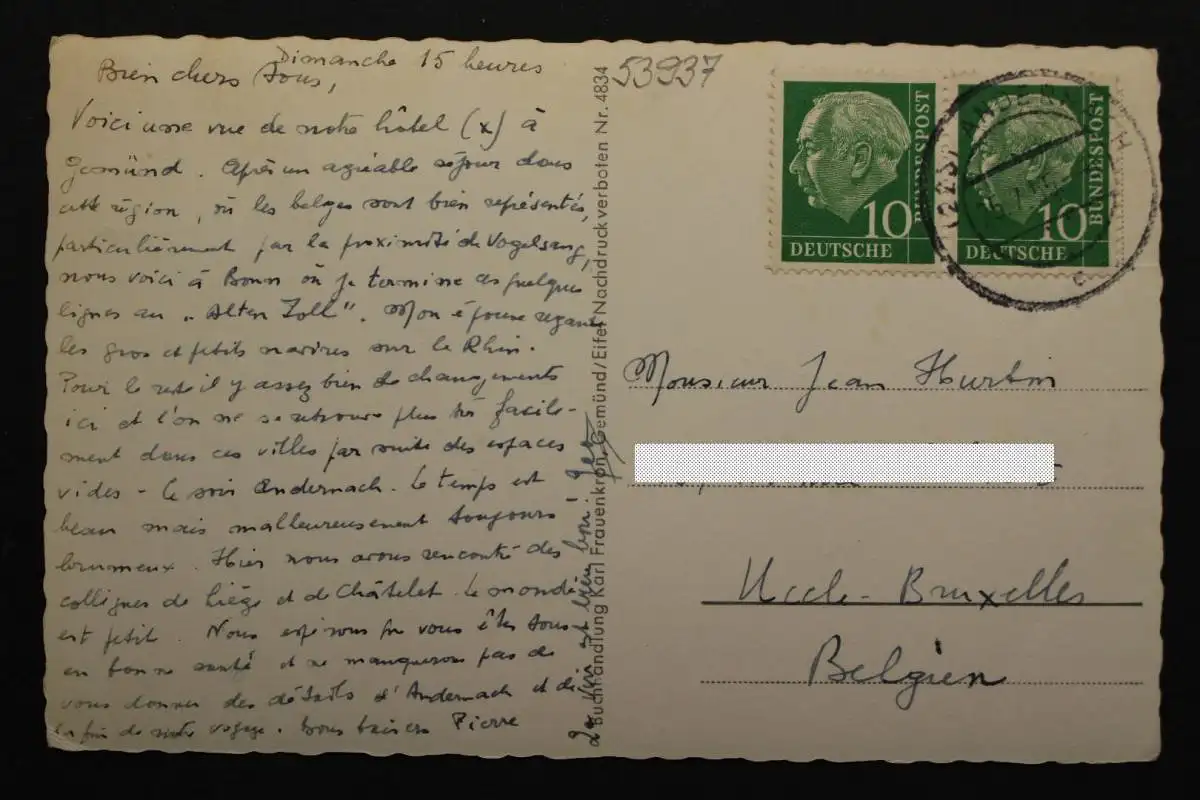 Dimanche 15 heures
Bien chers Tous,
Voici une vue de notre hôtel (x) à
Gemünd. Après un agréable séjour dans
cette région, où les belges sont bien représentés,
particulièrement par la proximité de Vogelsang,
nous voici à Bonn où je termine ces quelques
lignes au „Alten Zoll". Mon épouse regarde
les gros et petits navires sur le Rhin.
Pour le reste il y assez bien de changements
ici et l'on ne se retrouve plus très facile-
ment dans ces villes par suite des espaces
vides - Ce soir Andernach. Le temps est
beau mais malheureusement toujours
brumeux. Hier nous avons rencontré des
collègues de Liège et de Châtelet. Le monde
est petit. Nous espérons que vous êtes tous
en bonne santé et ne manquerons pas de
vous donner des détails d'Andernach et de
la fin de notre voyage. Bons baisers Pierre
Le vin est bien bon!
Buchhandlung Karl Frauenkron, Gemünd/Eifel Nachdruck verboten Nr. 4834
53937
10
DEUTSCHE
BUNDESPOST
10
DEUTSCHE
BUNDESPOST
(22b) ANDERNACH
c
Monsieur Jean Hurbin
Uccle-Bruxelles
Belgien